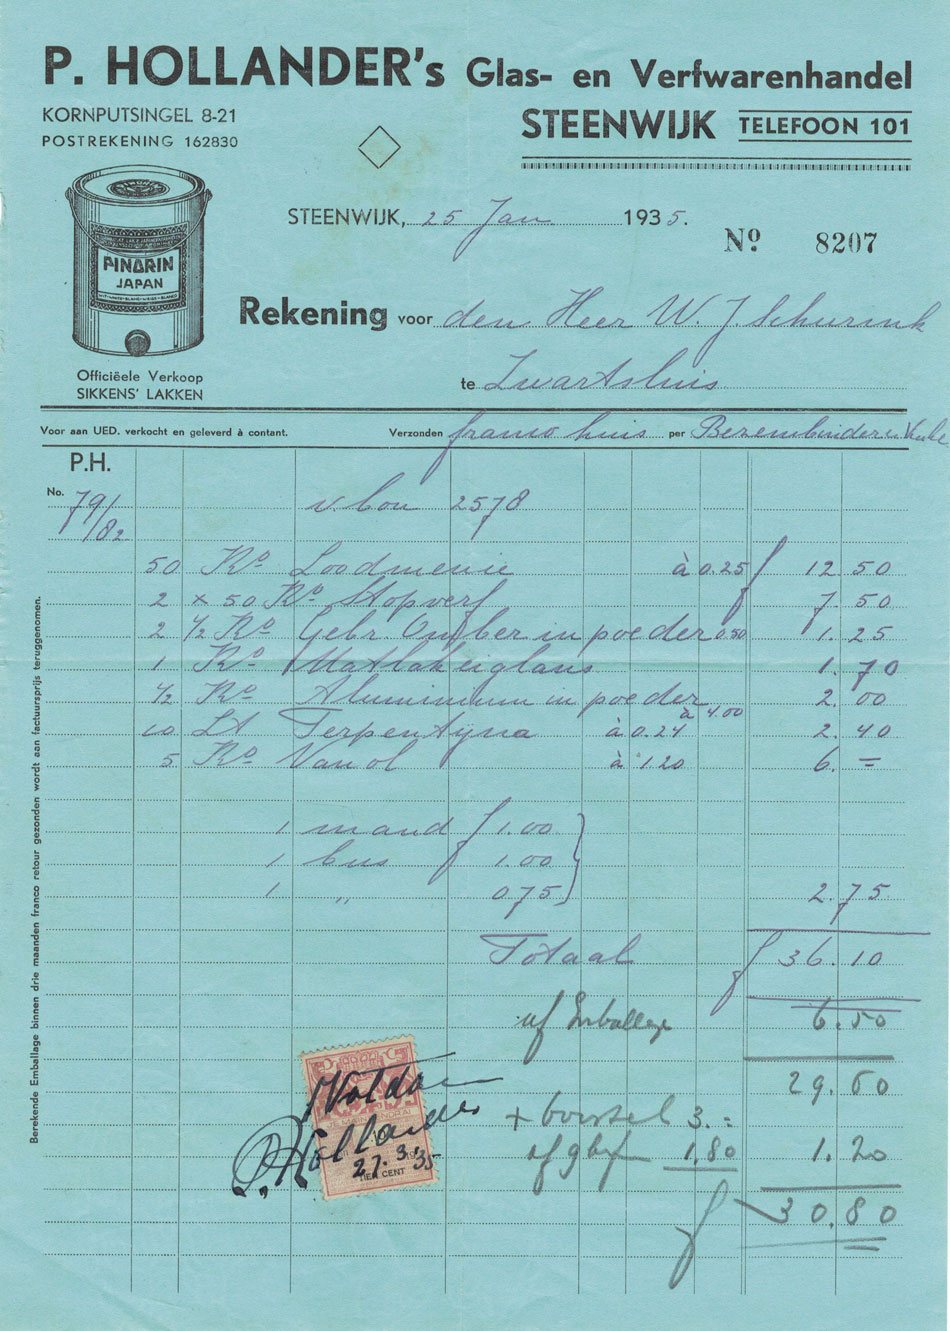 P. HOLLANDER's Glas- en Verfwarenhandel
KORNPUTSINGEL 8-21
POSTREKENING 162830
STEENWIJK TELEFOON 101
STEENWIJK, 25 Jan 1935.
No. 8207
PINDRIN
JAPAN
Officiëele Verkoop
SIKKENS' LAKKEN
Rekening voor den Heer W. J. Schurink
te Zwartsluis
Voor aan UED. verkocht en geleverd à contant.
Verzonden franco huis per Bezembinder
P.H.
No. 79/82
v. bon 2578
50 Ko Loodmenie à 0.25 f 12.50
2 x 50 Ko Stopverf 7.50
2 1/2 Ko Gebr. Omber in poeder 0.50 1.25
1 Ko Matlak eiglans 1.70
1/2 Ko Aluminium in poeder à 4.00 2.00
10 Lt Terpentyna à 0.24 2.40
5 Ko Vanol à 1.20 6.=
1 mand f 1.00
1 bus 1.00
1 ,, 0.75 2.75
Totaal f 36.10
af Emballage 6.50
29.60
+ borstel 3.=
af 1.80 1.20
f 30.80
Voldaan
P. Hollander
27.3.35
CENT
Berekende Emballage binnen drie maanden franco retour gezonden wordt aan factuursprijs teruggenomen.